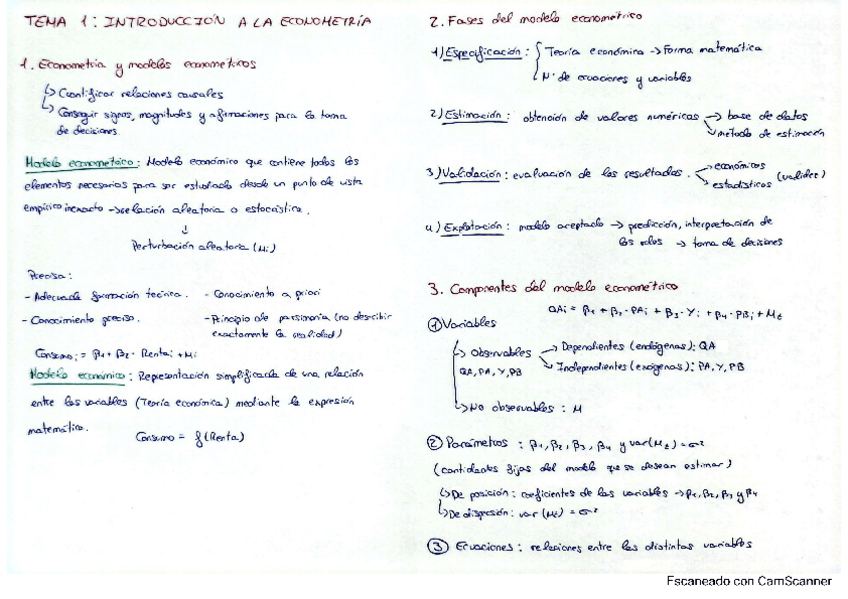 TEMA 1: INTRODUCCIÓN A LA ECONOMETRÍA
1. Econometría y modelos econométricos
↳ Cuantificar relaciones causales
↳ Conseguir signos, magnitudes y afirmaciones para la toma
de decisiones.
Modelo econométrico: Modelo económico que contiene todos los
elementos necesarios para ser estudiado desde un punto de vista
empírico inexacto → relación aleatoria o estocástica.
↓
Perturbación aleatoria (Mi)
Precisa:
- Adecuada formación teórica. - Conocimiento a priori
- Conocimiento preciso. - Principio de parsimonia (no describir
exactamente la realidad)
Consumoi = β1 + β2 · Rentai + Mi
Modelo económico: Representación simplificada de una relación
entre las variables (Teoría económica) mediante la expresión
matemática.
Consumo = f(Renta)
2. Fases del modelo econométrico
1) Especificación: Teoría económica → Forma matemática
Nº de ecuaciones y variables
2) Estimación: obtención de valores numéricos → base de datos
→ método de estimación
3) Validación: evaluación de los resultados. económicos
estadísticos (validez)
4) Explotación: modelo aceptado → predicción, interpretación de
los → toma de decisiones
3. Componentes del modelo econométrico
QAi = β1 + β2 · PAi + β3 · Yi + β4 · PBi + Mt
① Variables
↳ Observables → Dependientes (endógenas): QA
QA, PA, Y, PB → Independientes (exógenas): PA, Y, PB
↳ No observables: M
② Parámetros: β1, β2, β3, β4 y var(Mt) = σ²
(cantidades fijas del modelo que se desean estimar)
↳ De posición: coeficientes de las variables → β1, β2, β3 y β4
↳ De dispersión: var (Mt) = σ²
③ Ecuaciones: relaciones entre las distintas variables
Escaneado con CamScanner